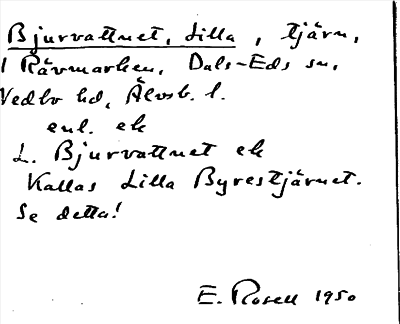 Bjurvattnet, Lilla, tjärn,
i Rävmarken, Dals-Eds sn,
Vedbo hd, Älvsb. l.
enl. ek
L. Bjurvattnet ek
Kallas Lilla Byrestjärnet.
Se detta!
E. Rosell 1950